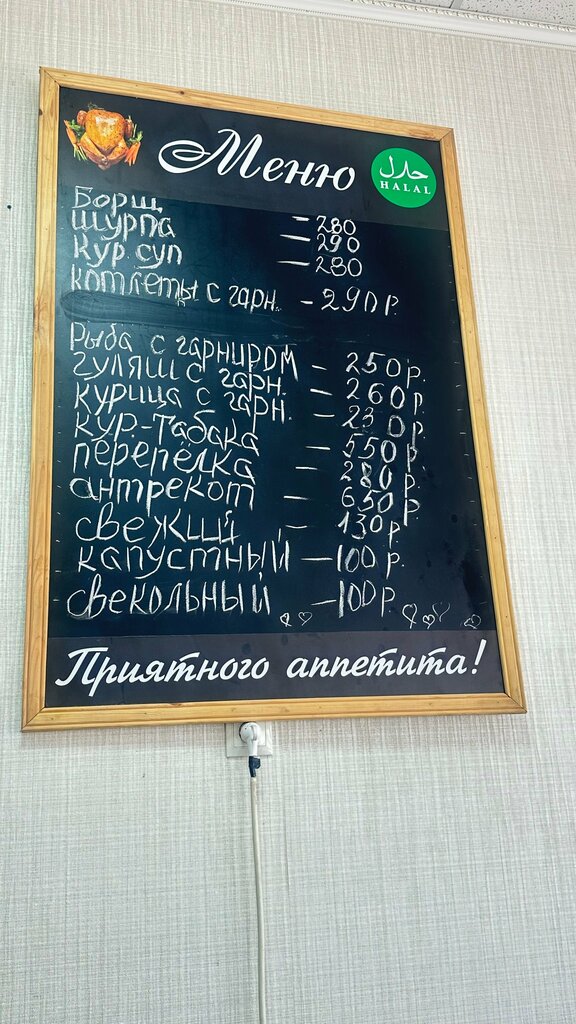 Меню
حلال
HALAL
Борщ - 280
Шурпа - 290
Кур. суп - 280
Котлеты с гарн. - 290 р.
Рыба с гарниром - 250 р.
Гуляш с гарн. - 260 р.
Курица с гарн. - 230 р.
Кур.-Табака - 550 р.
Перепелка - 280 р.
Антрекот - 650 р.
Свежий - 130 р.
Капустный - 100 р.
Свекольный - 100 р.
Приятного аппетита!